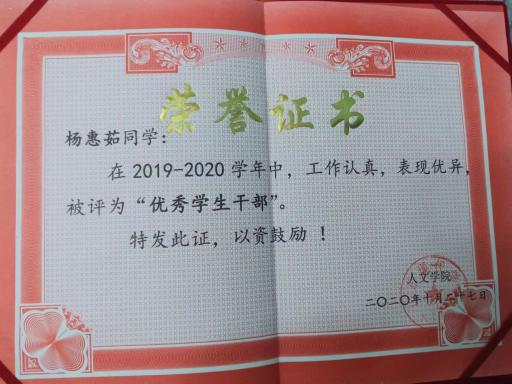 荣誉证书
杨惠茹同学：
在 2019-2020 学年中，工作认真，表现优异，
被评为“优秀学生干部”。
特发此证，以资鼓励 ！
人文学院
二〇二〇年十月二十七日